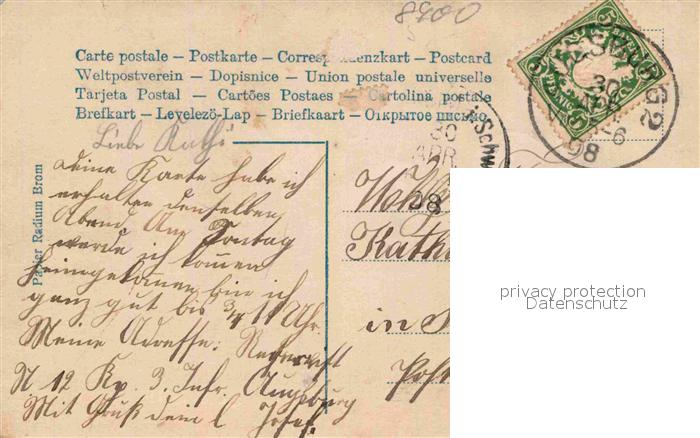 8900
Carte postale – Postkarte – Correspondenzkart – Postcard
Weltpostverein – Dopisnice – Union postale universelle
Tarjeta Postal – Cartões Postaes – Cartolina postale
Brefkart – Levelező-Lap – Briefkaart – Открытое письмо
Papier Radium Brom
Liebe Kathi
deine Karte habe ich
erhalten denselben
Abend. Am Sontag
werde ich kommen
heimgekommen bin ich
ganz gut bis 3/4 11 Uhr.
Meine Adresse:
N 12 Kp. 3. Infr. Augsburg
Mit Gruß dein l Josef
30
APR
08
30
APR
08
Kath
in
Post
privacy protection
Datenschutz